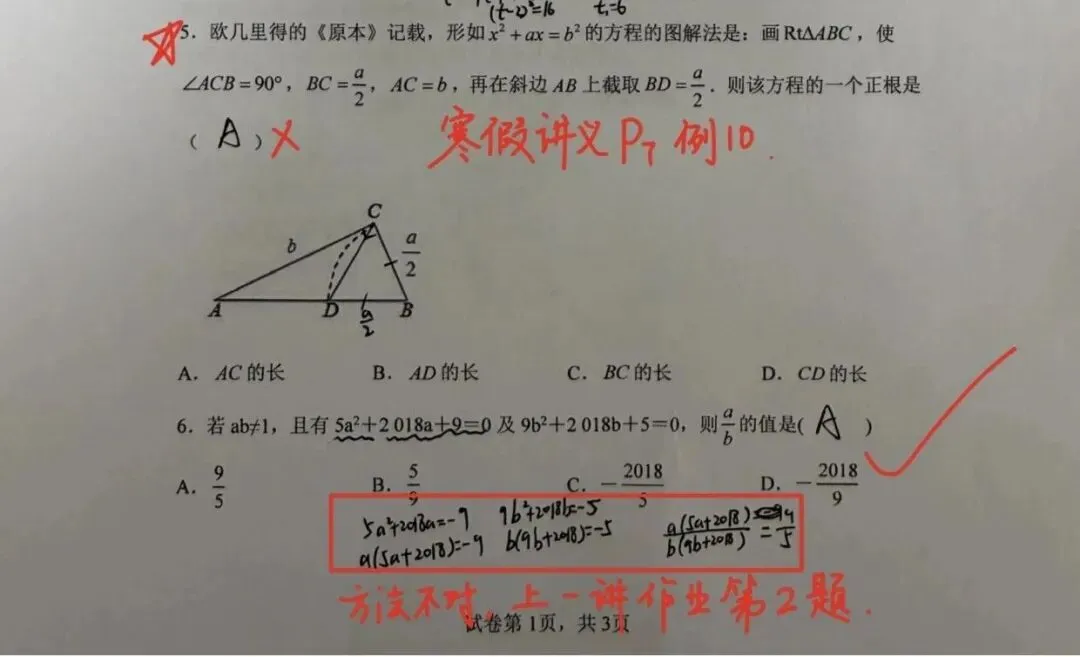 (t-2)²=16 t₁=6
5．欧几里得的《原本》记载，形如x²+ax=b²的方程的图解法是：画Rt∆ABC，使
∠ACB=90°，BC=a/2，AC=b，再在斜边AB上截取BD=a/2．则该方程的一个正根是
（ A ）×
寒假讲义 P7 例10.
C
b
a/2
A
D
B
a/2
A．AC的长 B．AD的长 C．BC的长 D．CD的长
6．若ab≠1，且有5a²+2 018a+9=0及9b²+2 018b+5=0，则a/b的值是( A )
A．9/5 B．5/9 C．-2018/5 D．-2018/9
5a²+2018a=-9 9b²+2018b=-5
a(5a+2018)=-9 b(9b+2018)=-5 a(5a+2018)/b(9b+2018)=9/5
方法不对，上一讲作业第2题.
试卷第1页，共3页